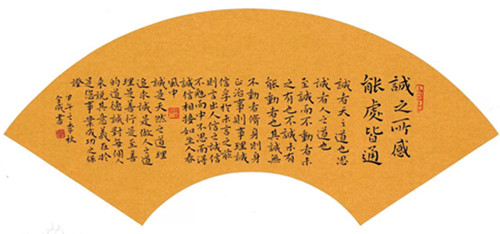 誠之所感
能處皆通
誠者天之道也思
誠者人之道也
至誠而不動者未
之有也不誠未有
能動者也其誠無
不動者修身則身
正治事則事理誠
信孚於未言之
則言出人信誠信
不勉而中不思而得
誠信相接如坐人春
風中
誠是天然之道理
追求誠是做人之道
理是善行是至善
的道德誠對每個人
來說其意義在於
是您事業成功之保
證
甲午年秋
書